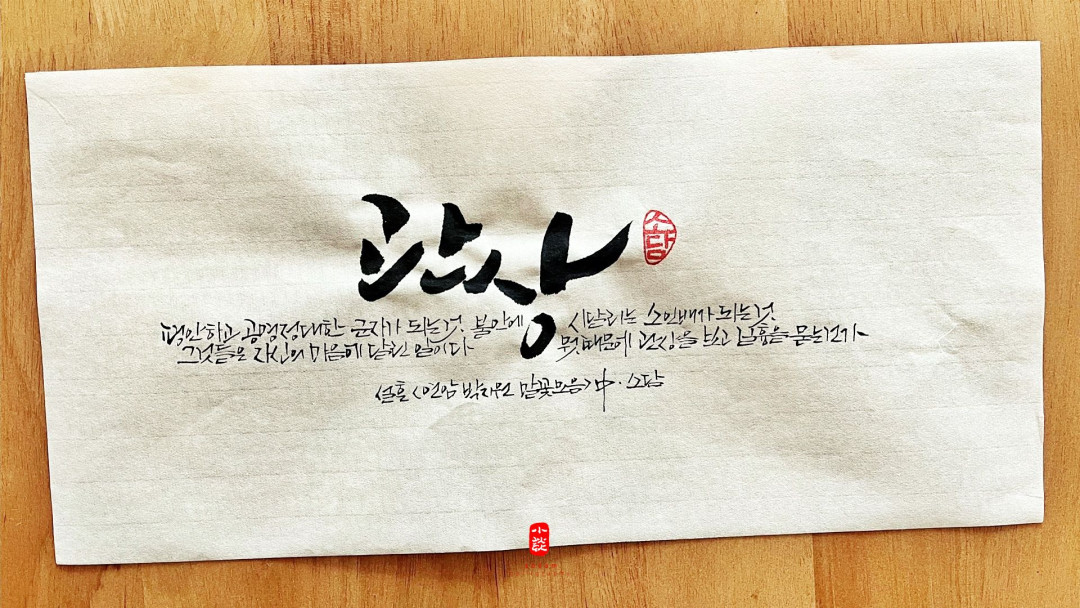 관상
소담
평안하고 공명정대한 군자가 되는것, 불안에 시달리는 소인배가 되는것
그것들은 자신의 마음에 달린 일이다 뭣때문에 관상을 보고 길흉을 묻는건가
설흔 <연암 박지원 말꽃모음> 中. 소담
小